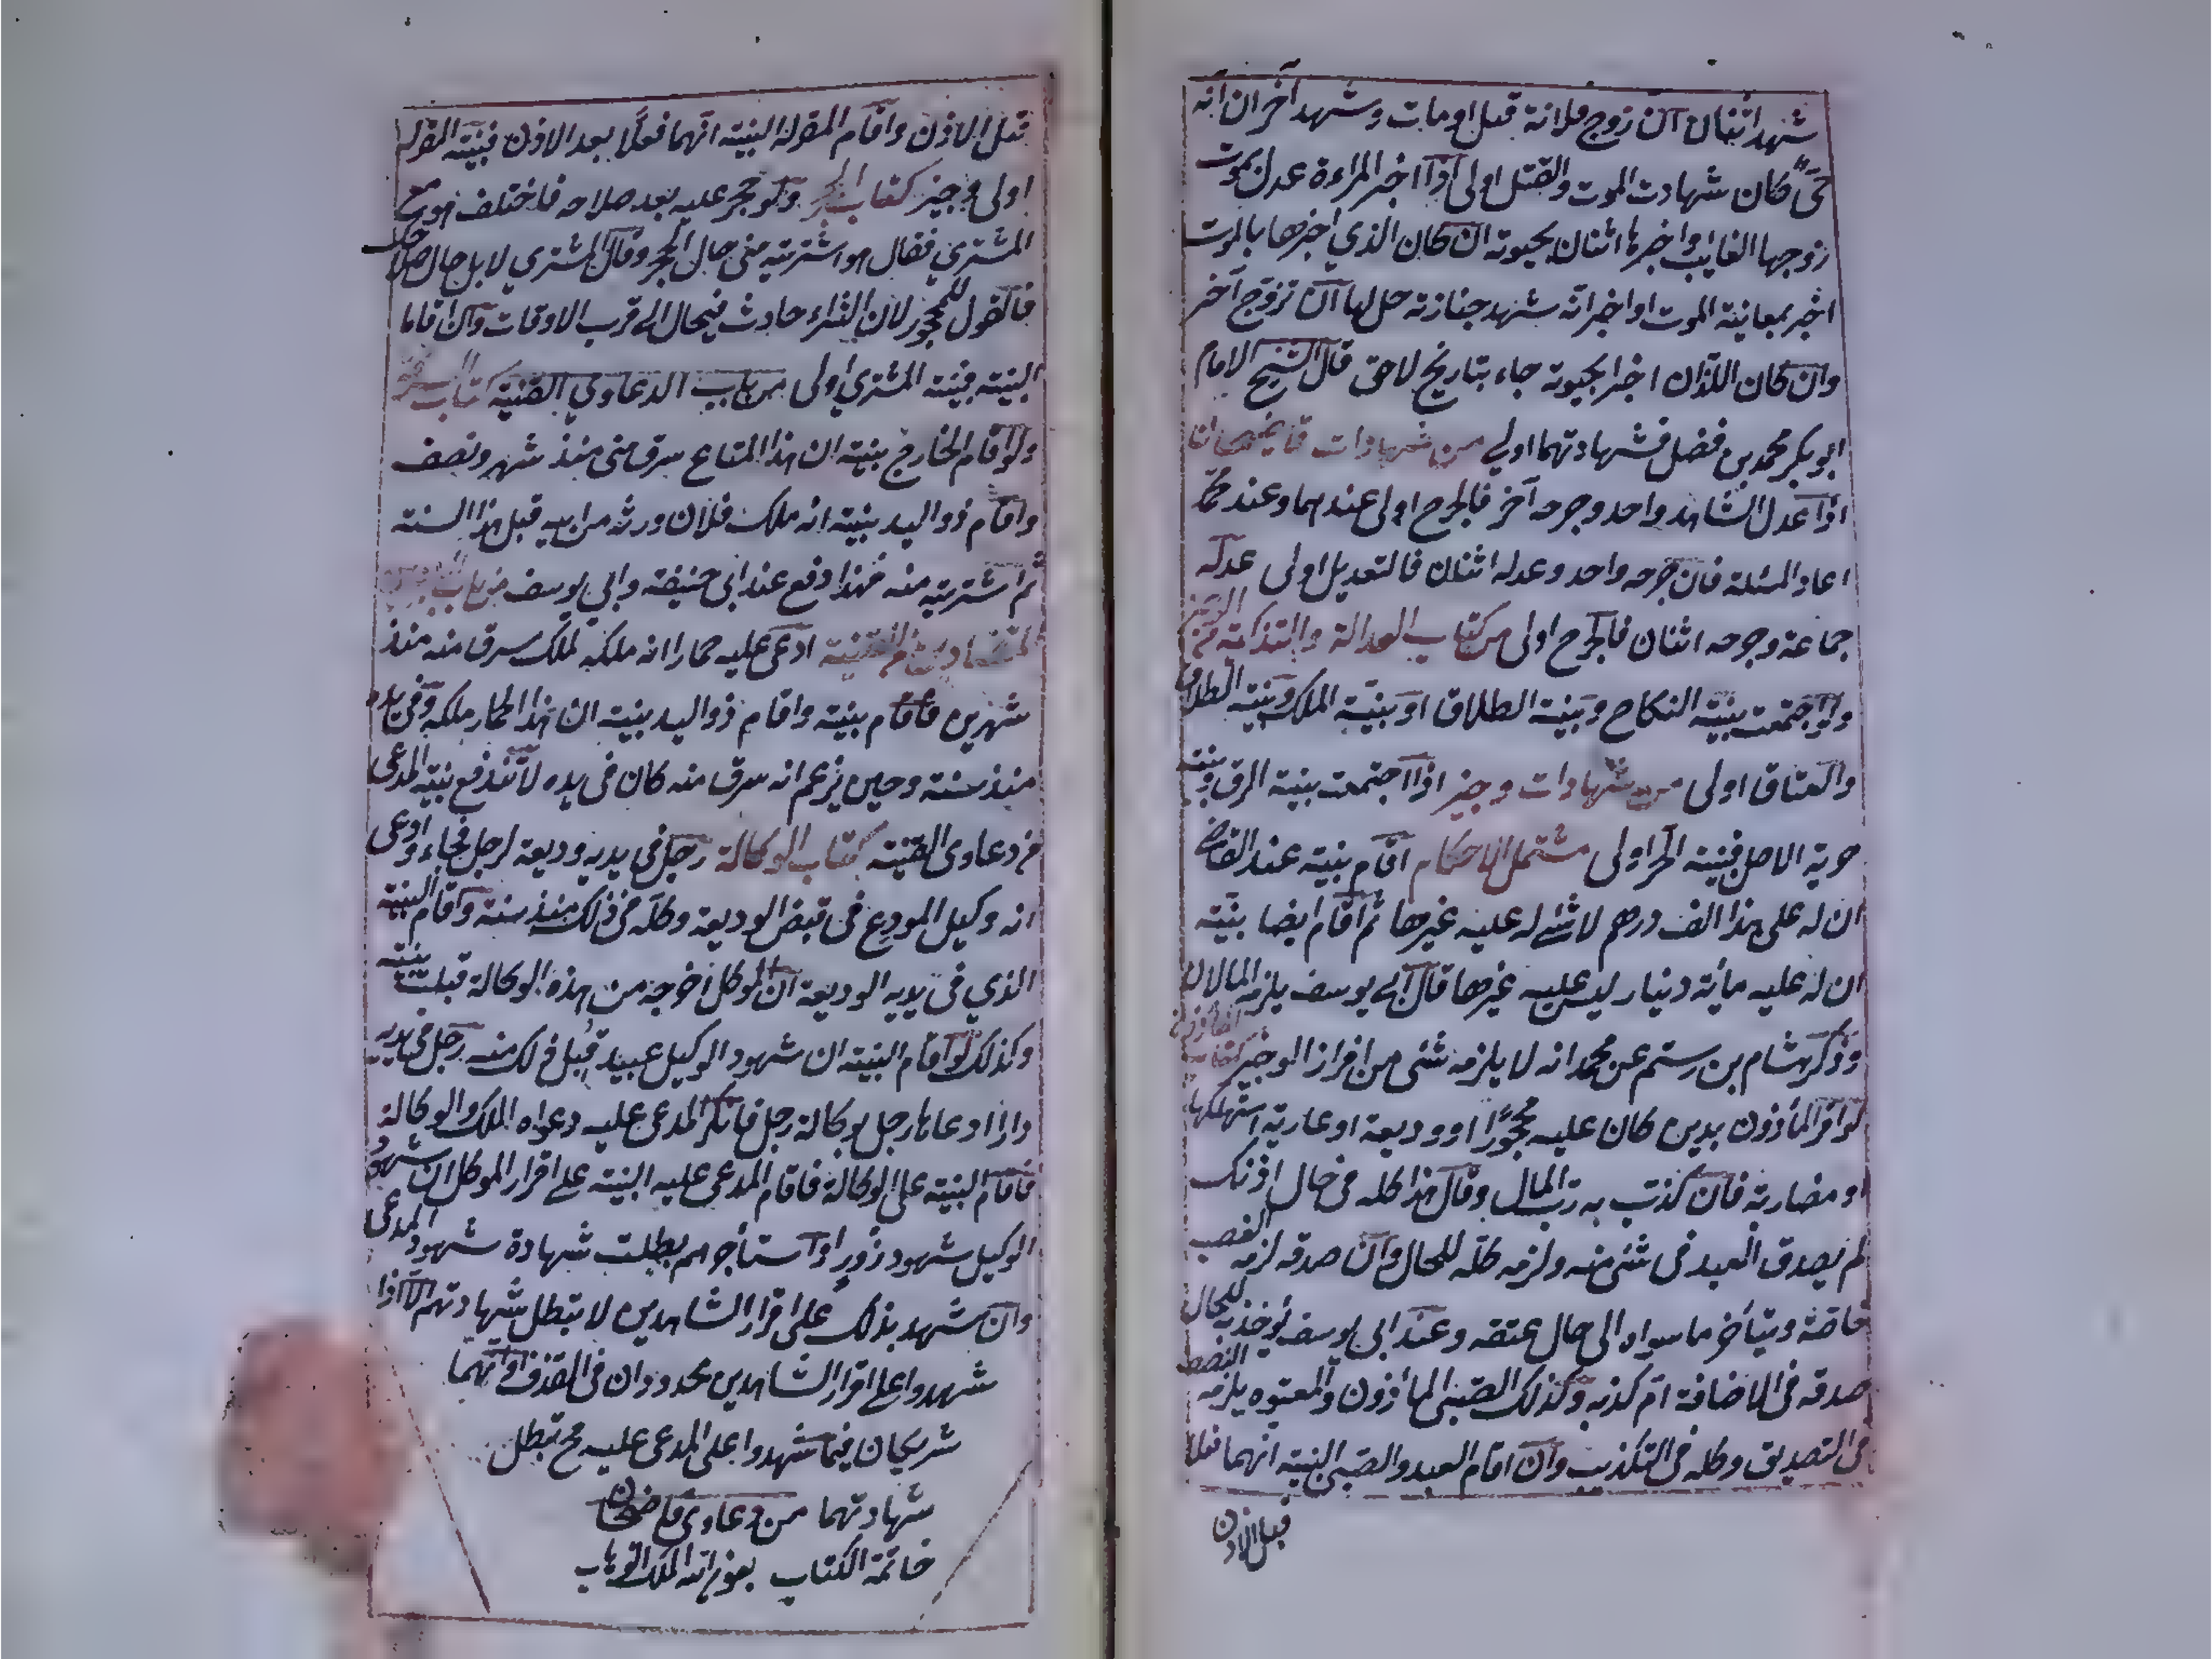 شهد اثنان ان زوج فلانة قتل او مات وشهد آخران انه
حيّ كان شهادت الموت والقتل اولى اذا اخبر المراءة عدل بموت
زوجها الغايب واخبرها اثنان بحيوته ان كان الذي اخبرها بالموت
اخبر بمعاينة الموت او اخبر انه شهد جنازته حل لها ان تزوج آخر
وان كان اللذان اخبرا بحيوته جاء بتاريخ لاحق قال الشيخ الامام
ابو بكر محمد بن فضل فشهادتهما اولى من شهادات قاضيخان
اذا عدل الشاهد واحد وجرحه آخر فالجرح اولى عندهما وعند محمد
اعاد المسئلة فان جرحه واحد وعدله اثنان فالتعديل اولى عدله
جماعة وجرحه اثنان فالجرح اولى من كتاب العدالة والتذكية من الوجيز
ولو اجتمعت بينة النكاح وبينة الطلاق او بينة الملك وبينة الطلاق
والعتاق اولى من شهادات وجيز اذا اجتمعت بينة الرق وبينة
حرية الاصل فبينة الحر اولى مشتمل الاحكام اقام بينة عند القاضي
ان له على هذا الف درهم لا شئ له عليه غيرها ثم اقام ايضا بينة
ان له عليه مأية دينار ليس عليه غيرها قال ابي يوسف يلزمه المالان
وذكر هشام بن رستم عن محمد انه لا يلزمه شئ من افراز الوجيز كتاب
لو اقر المأذون بدين كان عليه محجورًا او وديعة او عارية استهلكها
او مضاربة فان كذب به رب المال وقال هذا كله في حال اذنك
لم يصدق العبد في شئ منه ولزمه كله للحال وان صدقه لزمه الغصب
خاصة ويتأخر ما سواه الى حال عتقه وعند ابي يوسف يؤخذ به للحال
صدقه في الاضافة ام كذبه وكذلك الصبي المأذون والمعتوه يلزمه النصف
في التصديق وكله في التكذيب وان اقام العبد والصبي البينة انهما فعلا
قبل الاذن
قبل الاذن واقام المقوله البينة انهما فعلا بعد الاذن فبينة المقوله
اولى وجيز كتاب الحجر ولو حجر عليه بعد صلاحه فاختلف هو مع
المشتري فقال هو اشتريته مني حال الحجر وقال المشتري لا بل حال صلاحك
فالقول للمحجور لان الشراء حادث فيحال الى قرب الاوقات وان اقاما
البينة فبينة المشتري اولى من باب الدعاوي القنية كتاب السرقة
ولو اقام الخارج بينة ان هذا المتاع سرق مني منذ شهر ونصف
واقام ذو اليد بينة انه ملك فلان ورثه من ابيه قبل هذا السنة
ثم اشتريته منه فهذا دفع عند ابي حنيفة وابي يوسف من باب
ادعى عليه حمارا انه ملكه لملك سرق منه منذ
شهرين فأقام بينة واقام ذو اليد بينة ان هذا الحمار ملكه وفي يده
منذ سنة وحين يزعم انه سرق منه كان في يده لا تندفع بينة المدعي
من دعاوى القنية كتاب الوكالة رجل في يديه وديعة لرجل فجاء وادعى
انه وكيل المودع في قبض الوديعة وكله في ذلك منذ سنة واقام البينة
الذي في يديه الوديعة ان الموكل اخرجه من هذه الوكالة قبلت بينته
وكذلك لو اقام البينة ان شهود الوكيل عبيد قبل ذلك منه رجل في يديه
دار ادعاها رجل بوكالة رجل فانكر المدعى عليه دعواه الملك والوكالة
فاقام البينة على الوكالة فاقام المدعى عليه البينة على اقرار الموكل ان شهود
الوكيل شهود زور او استأجرهم بطلت شهادة شهود المدعي
وان شهد بذلك على اقرار الشاهدين لا تبطل شهادتهم الا اذا
شهدوا على اقرار الشاهدين محدودان في القذف او انهما
شريكان فيما شهدوا على المدعى عليه مح تبطل
شهادتهما من دعاوى قاضيخان
خاتمة الكتاب بعون الله الملك الوهاب